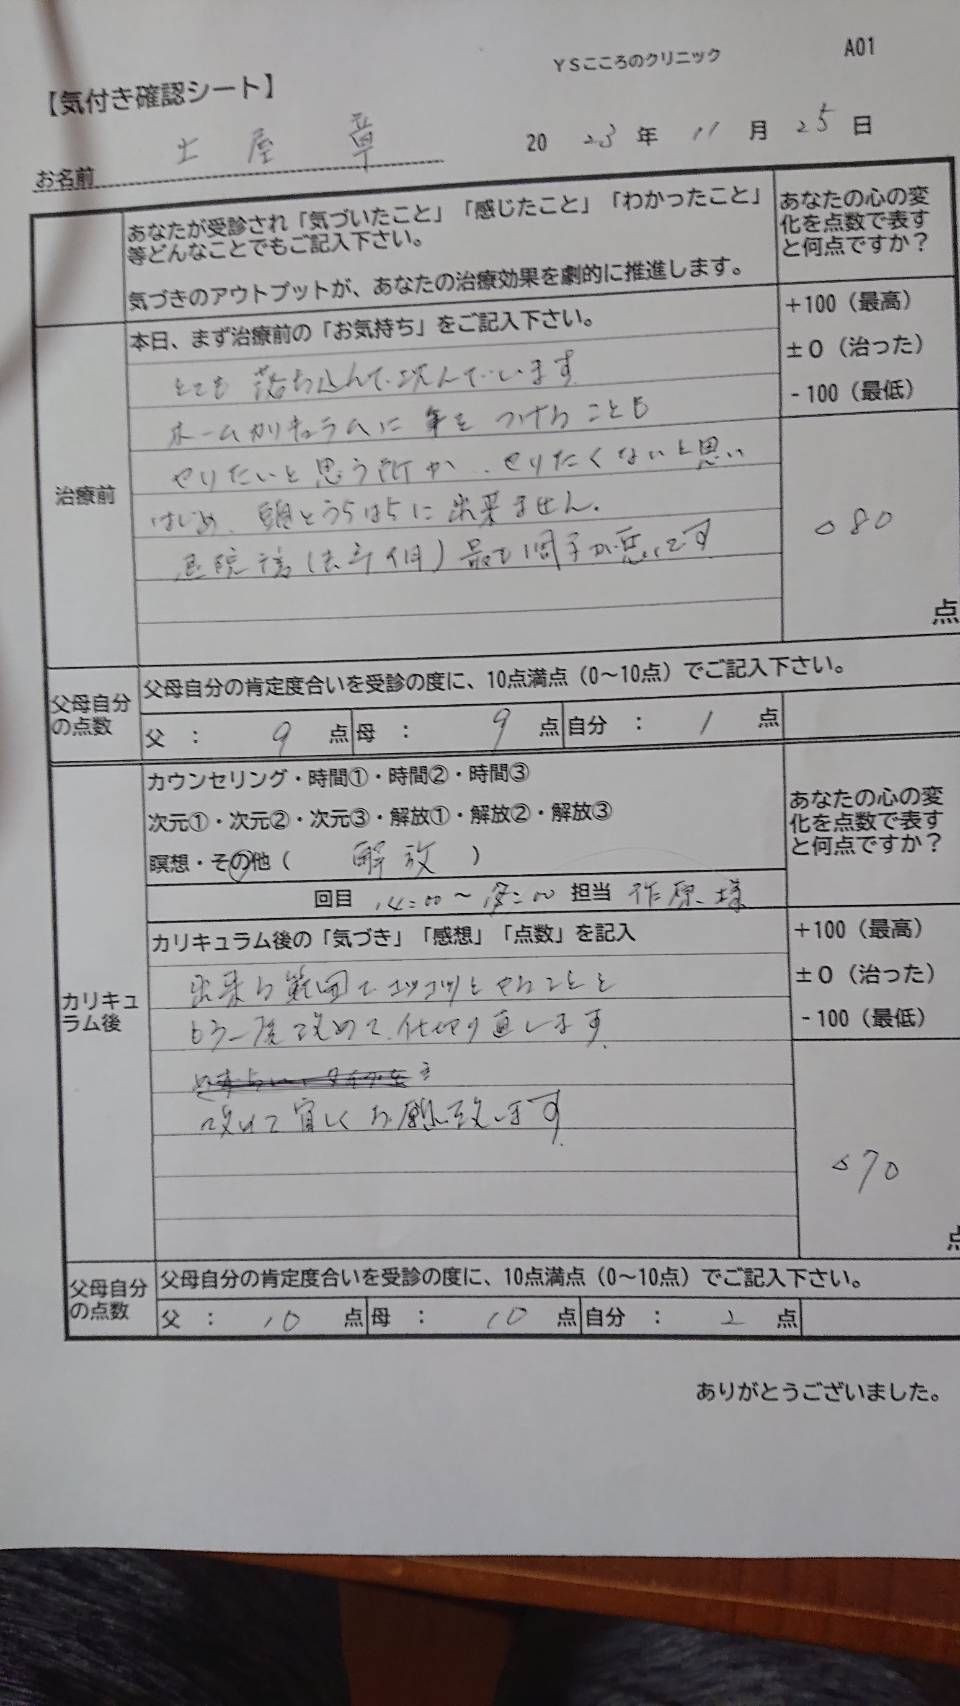 YSこころのクリニック
A01
【気付き確認シート】
お名前 土屋 章
2023年11月25日
あなたが受診され「気づいたこと」「感じたこと」「わかったこと」
等どんなことでもご記入下さい。
気づきのアウトプットが、あなたの治療効果を劇的に推進します。
あなたの心の変
化を点数で表す
と何点ですか？
治療前
本日、まず治療前の「お気持ち」をご記入下さい。
とても落ち込んで沈んでいます
ホームカリキュラムに手をつけることも
やりたいと思う所か、やりたくないと思い
はじめ、
に出来ません。
最も調子が悪いです
+100（最高）
±0（治った）
-100（最低）
80
点
父母自分
の点数
父母自分の肯定度合いを受診の度に、10点満点（0～10点）でご記入下さい。
父 ： 9 点 母 ： 9 点 自分 ： 1 点
カリキュ
ラム後
カウンセリング・時間①・時間②・時間③
次元①・次元②・次元③・解放①・解放②・解放③
瞑想・その他（ 解放 ）
回目 14:00～ 担当 様
あなたの心の変
化を点数で表す
と何点ですか？
カリキュラム後の「気づき」「感想」「点数」を記入
出来る範囲でコツコツとやることを
もう一度改めて仕切り直します
改めて宜しくお願い致します
+100（最高）
±0（治った）
-100（最低）
70
点
父母自分
の点数
父母自分の肯定度合いを受診の度に、10点満点（0～10点）でご記入下さい。
父 ： 10 点 母 ： 10 点 自分 ： 2 点
ありがとうございました。